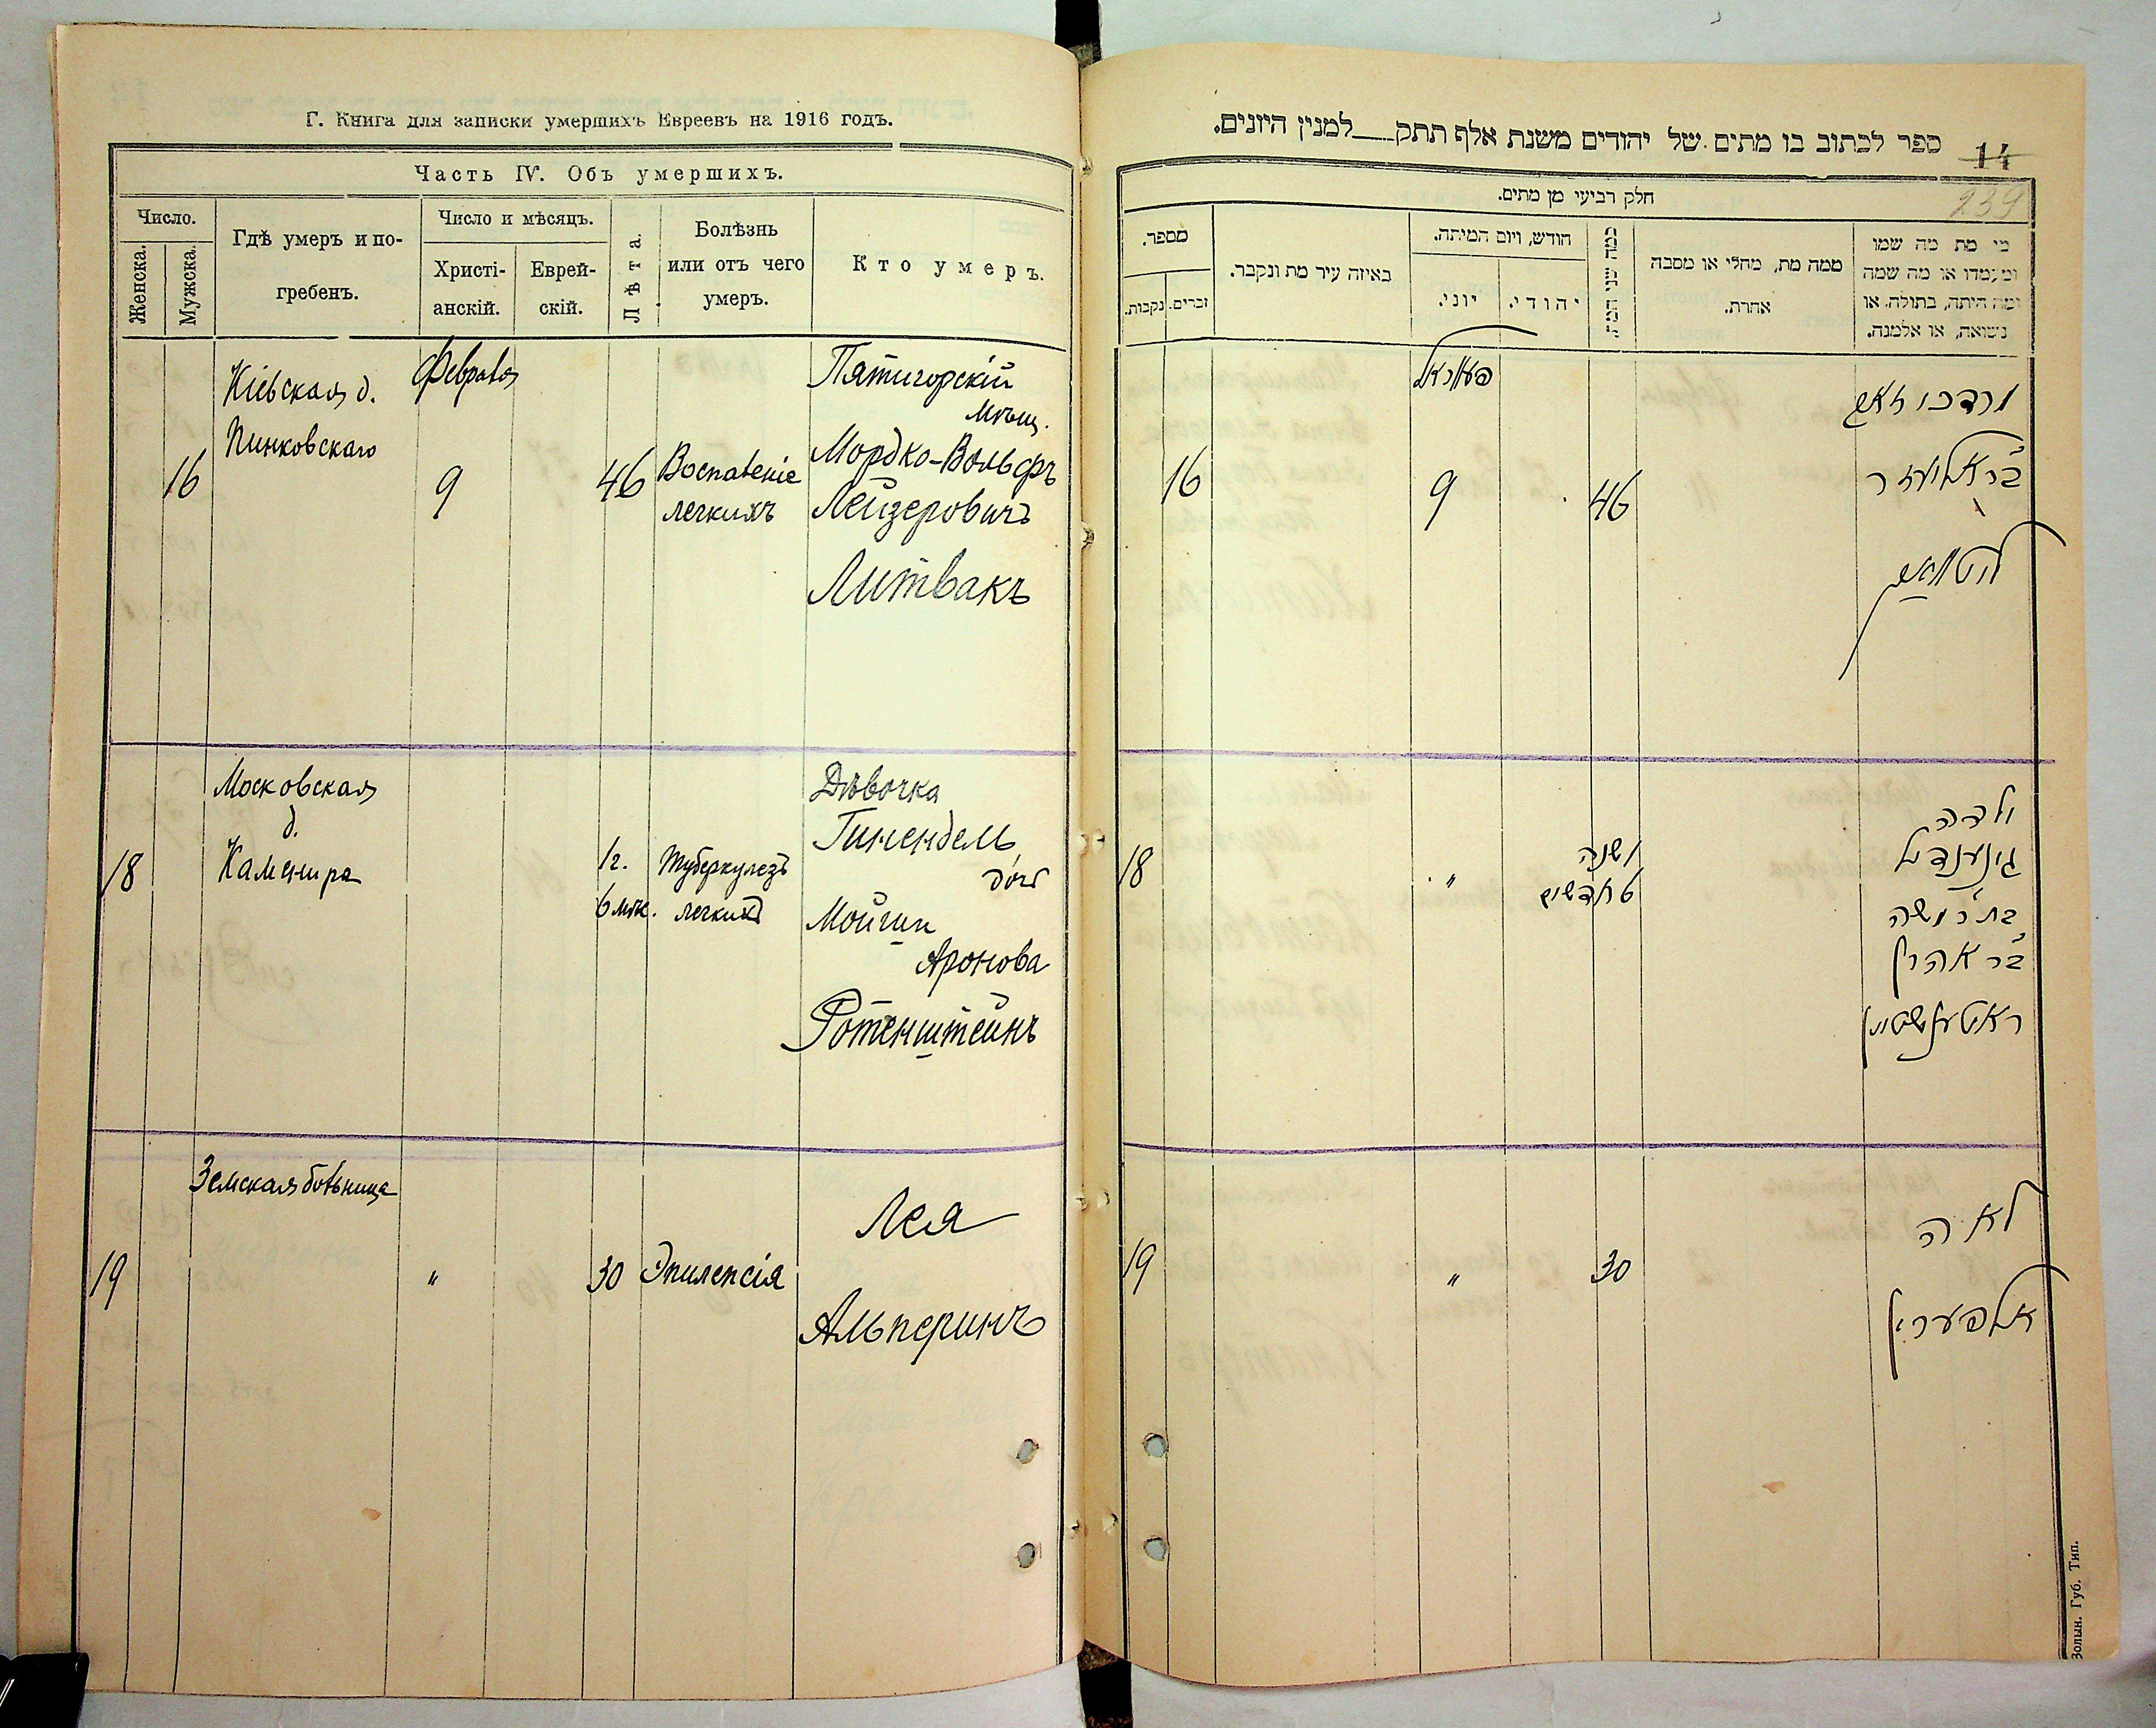 Г. Книга для записки умершихъ Евреевъ на 1916 годъ.
Часть IV. Объ умершихъ.
Число.
Женска.
Мужска.
Гдѣ умеръ и по-
гребенъ.
Число и мѣсяцъ.
Христі-
анскій.
Еврей-
скій.
Лѣта.
Болѣзнь
или отъ чего
умеръ.
Кто умеръ.
16
Кіевская д.
Пинковскаго
Февраля
9
46
Воспаленіе
легкихъ
Пятигорскій
мѣщ.
Мордко-Вольфъ
Лейзеровичъ
Литвакъ
18
Московская
д.
Каменира
1 г.
6 мѣс.
Туберкулезъ
легкихъ
Дѣвочка
Гинендель
дочь
Аронова
Ротенштейнъ
19
Земская больница
"
30
Эпилепсія
Лея
Альперинъ
ספר לכתוב בו מתים של יהודים משנת אלף תתק__למנין היונים.
14
239
חלק רביעי מן מתים.
מספר.
נקבות.
זכרים.
באיזה עיר מת ונקבר.
חודש, ויום המיתה.
יוני.
יהודי.
כמה שני המת
ממה מת, מחלי או מסבה
אחרת.
מי מת מה שמו
ומעמדו או מה שמה
ומה היתה, בתולה, או
נשואה, או אלמנה.
16
פעווראל
9
46
מרדכי וואלף
ב״ר אליעזר
ליטוואק
18
"
1 שנה
6 חדשים
ילדה
גינענדיל
בת ר׳ משה
ב״ר אהרן
ראטענשטיין
19
"
30
לאה
אלפערין
Волын. Губ. Тип.